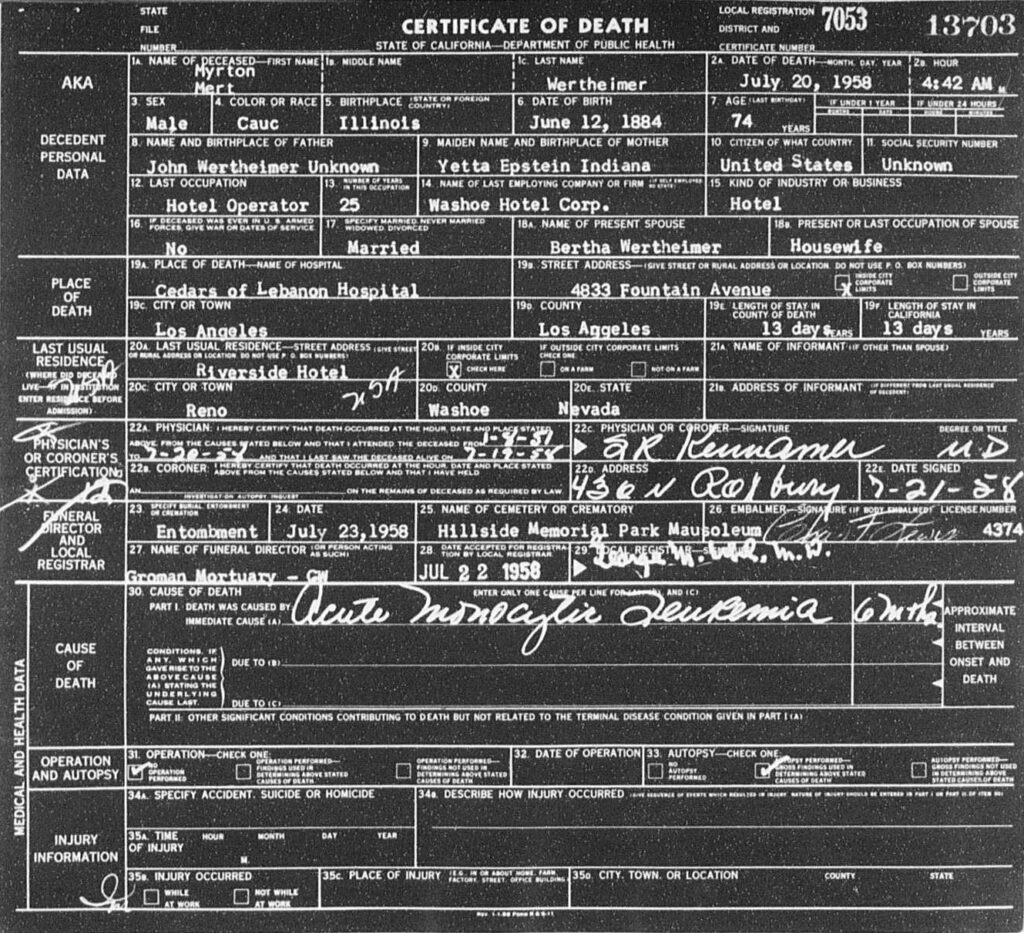 STATE FILE NUMBER
CERTIFICATE OF DEATH
STATE OF CALIFORNIA—DEPARTMENT OF PUBLIC HEALTH
LOCAL REGISTRATION DISTRICT AND CERTIFICATE NUMBER 7053 13703
AKA
DECEDENT PERSONAL DATA
1A. NAME OF DECEASED—FIRST NAME 1B. MIDDLE NAME 1C. LAST NAME 2A. DATE OF DEATH—MONTH, DAY, YEAR 2B. HOUR
Myrton
Mert Wertheimer July 20, 1958 4:42 AM M.
3. SEX 4. COLOR OR RACE 5. BIRTHPLACE (STATE OR FOREIGN COUNTRY) 6. DATE OF BIRTH 7. AGE (LAST BIRTHDAY) IF UNDER 1 YEAR IF UNDER 24 HOURS
Male Cauc Illinois June 12, 1884 74 YEARS
8. NAME AND BIRTHPLACE OF FATHER 9. MAIDEN NAME AND BIRTHPLACE OF MOTHER 10. CITIZEN OF WHAT COUNTRY 11. SOCIAL SECURITY NUMBER
John Wertheimer Unknown Yetta Epstein Indiana United States Unknown
12. LAST OCCUPATION 13. NUMBER OF YEARS IN THIS OCCUPATION 14. NAME OF LAST EMPLOYING COMPANY OR FIRM (IF SELF EMPLOYED SO STATE) 15. KIND OF INDUSTRY OR BUSINESS
Hotel Operator 25 Washoe Hotel Corp. Hotel
16. IF DECEASED WAS EVER IN U. S. ARMED FORCES, GIVE WAR OR DATES OF SERVICE 17. SPECIFY MARRIED, NEVER MARRIED, WIDOWED, DIVORCED 18A. NAME OF PRESENT SPOUSE 18B. PRESENT OR LAST OCCUPATION OF SPOUSE
No Married Bertha Wertheimer Housewife
PLACE OF DEATH
19A. PLACE OF DEATH—NAME OF HOSPITAL 19B. STREET ADDRESS—(GIVE STREET OR RURAL ADDRESS OR LOCATION. DO NOT USE P. O. BOX NUMBERS)
Cedars of Lebanon Hospital 4833 Fountain Avenue X INSIDE CITY CORPORATE LIMITS OUTSIDE CITY CORPORATE LIMITS
19C. CITY OR TOWN 19D. COUNTY 19E. LENGTH OF STAY IN COUNTY OF DEATH 19F. LENGTH OF STAY IN CALIFORNIA
Los Angeles Los Aggeles 13 days YEARS 13 days YEARS
LAST USUAL RESIDENCE
(WHERE DID DECEASED LIVE—IF IN INSTITUTION ENTER RESIDENCE BEFORE ADMISSION)
20A. LAST USUAL RESIDENCE—STREET ADDRESS (GIVE STREET OR RURAL ADDRESS OR LOCATION. DO NOT USE P. O. BOX NUMBERS) 20B. IF INSIDE CITY CORPORATE LIMITS IF OUTSIDE CITY CORPORATE LIMITS CHECK ONE 21A. NAME OF INFORMANT (IF OTHER THAN SPOUSE)
Riverside Hotel X CHECK HERE ON A FARM NOT ON A FARM
20C. CITY OR TOWN 20D. COUNTY 20E. STATE 21B. ADDRESS OF INFORMANT (IF DIFFERENT FROM LAST USUAL RESIDENCE OF DECEDENT)
Reno Washoe Nevada
PHYSICIAN'S OR CORONER'S CERTIFICATION
22A. PHYSICIAN: I HEREBY CERTIFY THAT DEATH OCCURRED AT THE HOUR, DATE AND PLACE STATED ABOVE, FROM THE CAUSES STATED BELOW AND THAT I ATTENDED THE DECEASED FROM
TO 7-20-58 AND THAT I LAST SAW THE DECEASED ALIVE ON 7-19-58
22C. PHYSICIAN OR CORONER—SIGNATURE DEGREE OR TITLE
M.D
22B. CORONER: I HEREBY CERTIFY THAT DEATH OCCURRED AT THE HOUR, DATE AND PLACE STATED ABOVE FROM THE CAUSES STATED BELOW AND THAT I HAVE HELD
AN ON THE REMAINS OF DECEASED AS REQUIRED BY LAW.
INVESTIGATION AUTOPSY INQUEST
22D. ADDRESS 22E. DATE SIGNED
436 N Roxbury 7-21-58
FUNERAL DIRECTOR AND LOCAL REGISTRAR
23. SPECIFY BURIAL, ENTOMBMENT OR CREMATION 24. DATE 25. NAME OF CEMETERY OR CREMATORY 26. EMBALMER—SIGNATURE (IF BODY EMBALMED) LICENSE NUMBER
Entombment July 23, 1958 Hillside Memorial Park Mausoleum 4374
27. NAME OF FUNERAL DIRECTOR (OR PERSON ACTING AS SUCH) 28. DATE ACCEPTED FOR REGISTRATION BY LOCAL REGISTRAR 29. LOCAL REGISTRAR—SIGNATURE
Groman Mortuary - GW JUL 22 1958 George M. Uhl, M.D.
MEDICAL AND HEALTH DATA
CAUSE OF DEATH
30. CAUSE OF DEATH ENTER ONLY ONE CAUSE PER LINE FOR (A), (B), AND (C)
PART I. DEATH WAS CAUSED BY
IMMEDIATE CAUSE (A) Acute Monocytic Leukemia 6 mths
APPROXIMATE INTERVAL BETWEEN ONSET AND DEATH
CONDITIONS, IF ANY, WHICH GAVE RISE TO THE ABOVE CAUSE (A) STATING THE UNDERLYING CAUSE LAST.
DUE TO (B)
DUE TO (C)
PART II: OTHER SIGNIFICANT CONDITIONS CONTRIBUTING TO DEATH BUT NOT RELATED TO THE TERMINAL DISEASE CONDITION GIVEN IN PART I (A)
OPERATION AND AUTOPSY
31. OPERATION—CHECK ONE: 32. DATE OF OPERATION 33. AUTOPSY—CHECK ONE:
OPERATION PERFORMED OPERATION PERFORMED—FINDINGS USED IN DETERMINING ABOVE STATED CAUSES OF DEATH OPERATION PERFORMED—FINDINGS NOT USED IN DETERMINING ABOVE STATED CAUSES OF DEATH
NO AUTOPSY PERFORMED AUTOPSY PERFORMED—GROSS FINDINGS USED IN DETERMINING ABOVE STATED CAUSES OF DEATH AUTOPSY PERFORMED—GROSS FINDINGS NOT USED IN DETERMINING ABOVE STATED CAUSES OF DEATH
INJURY INFORMATION
34A. SPECIFY ACCIDENT, SUICIDE OR HOMICIDE 34B. DESCRIBE HOW INJURY OCCURRED (GIVE SEQUENCE OF EVENTS WHICH RESULTED IN INJURY. NATURE OF INJURY SHOULD BE ENTERED IN PART I OR PART II OF ITEM 30)
35A. TIME OF INJURY HOUR MONTH DAY YEAR
M.
35B. INJURY OCCURRED 35C. PLACE OF INJURY (E.G., IN OR ABOUT HOME, FARM, FACTORY, STREET, OFFICE BUILDING) 35D. CITY, TOWN, OR LOCATION COUNTY STATE
WHILE AT WORK NOT WHILE AT WORK